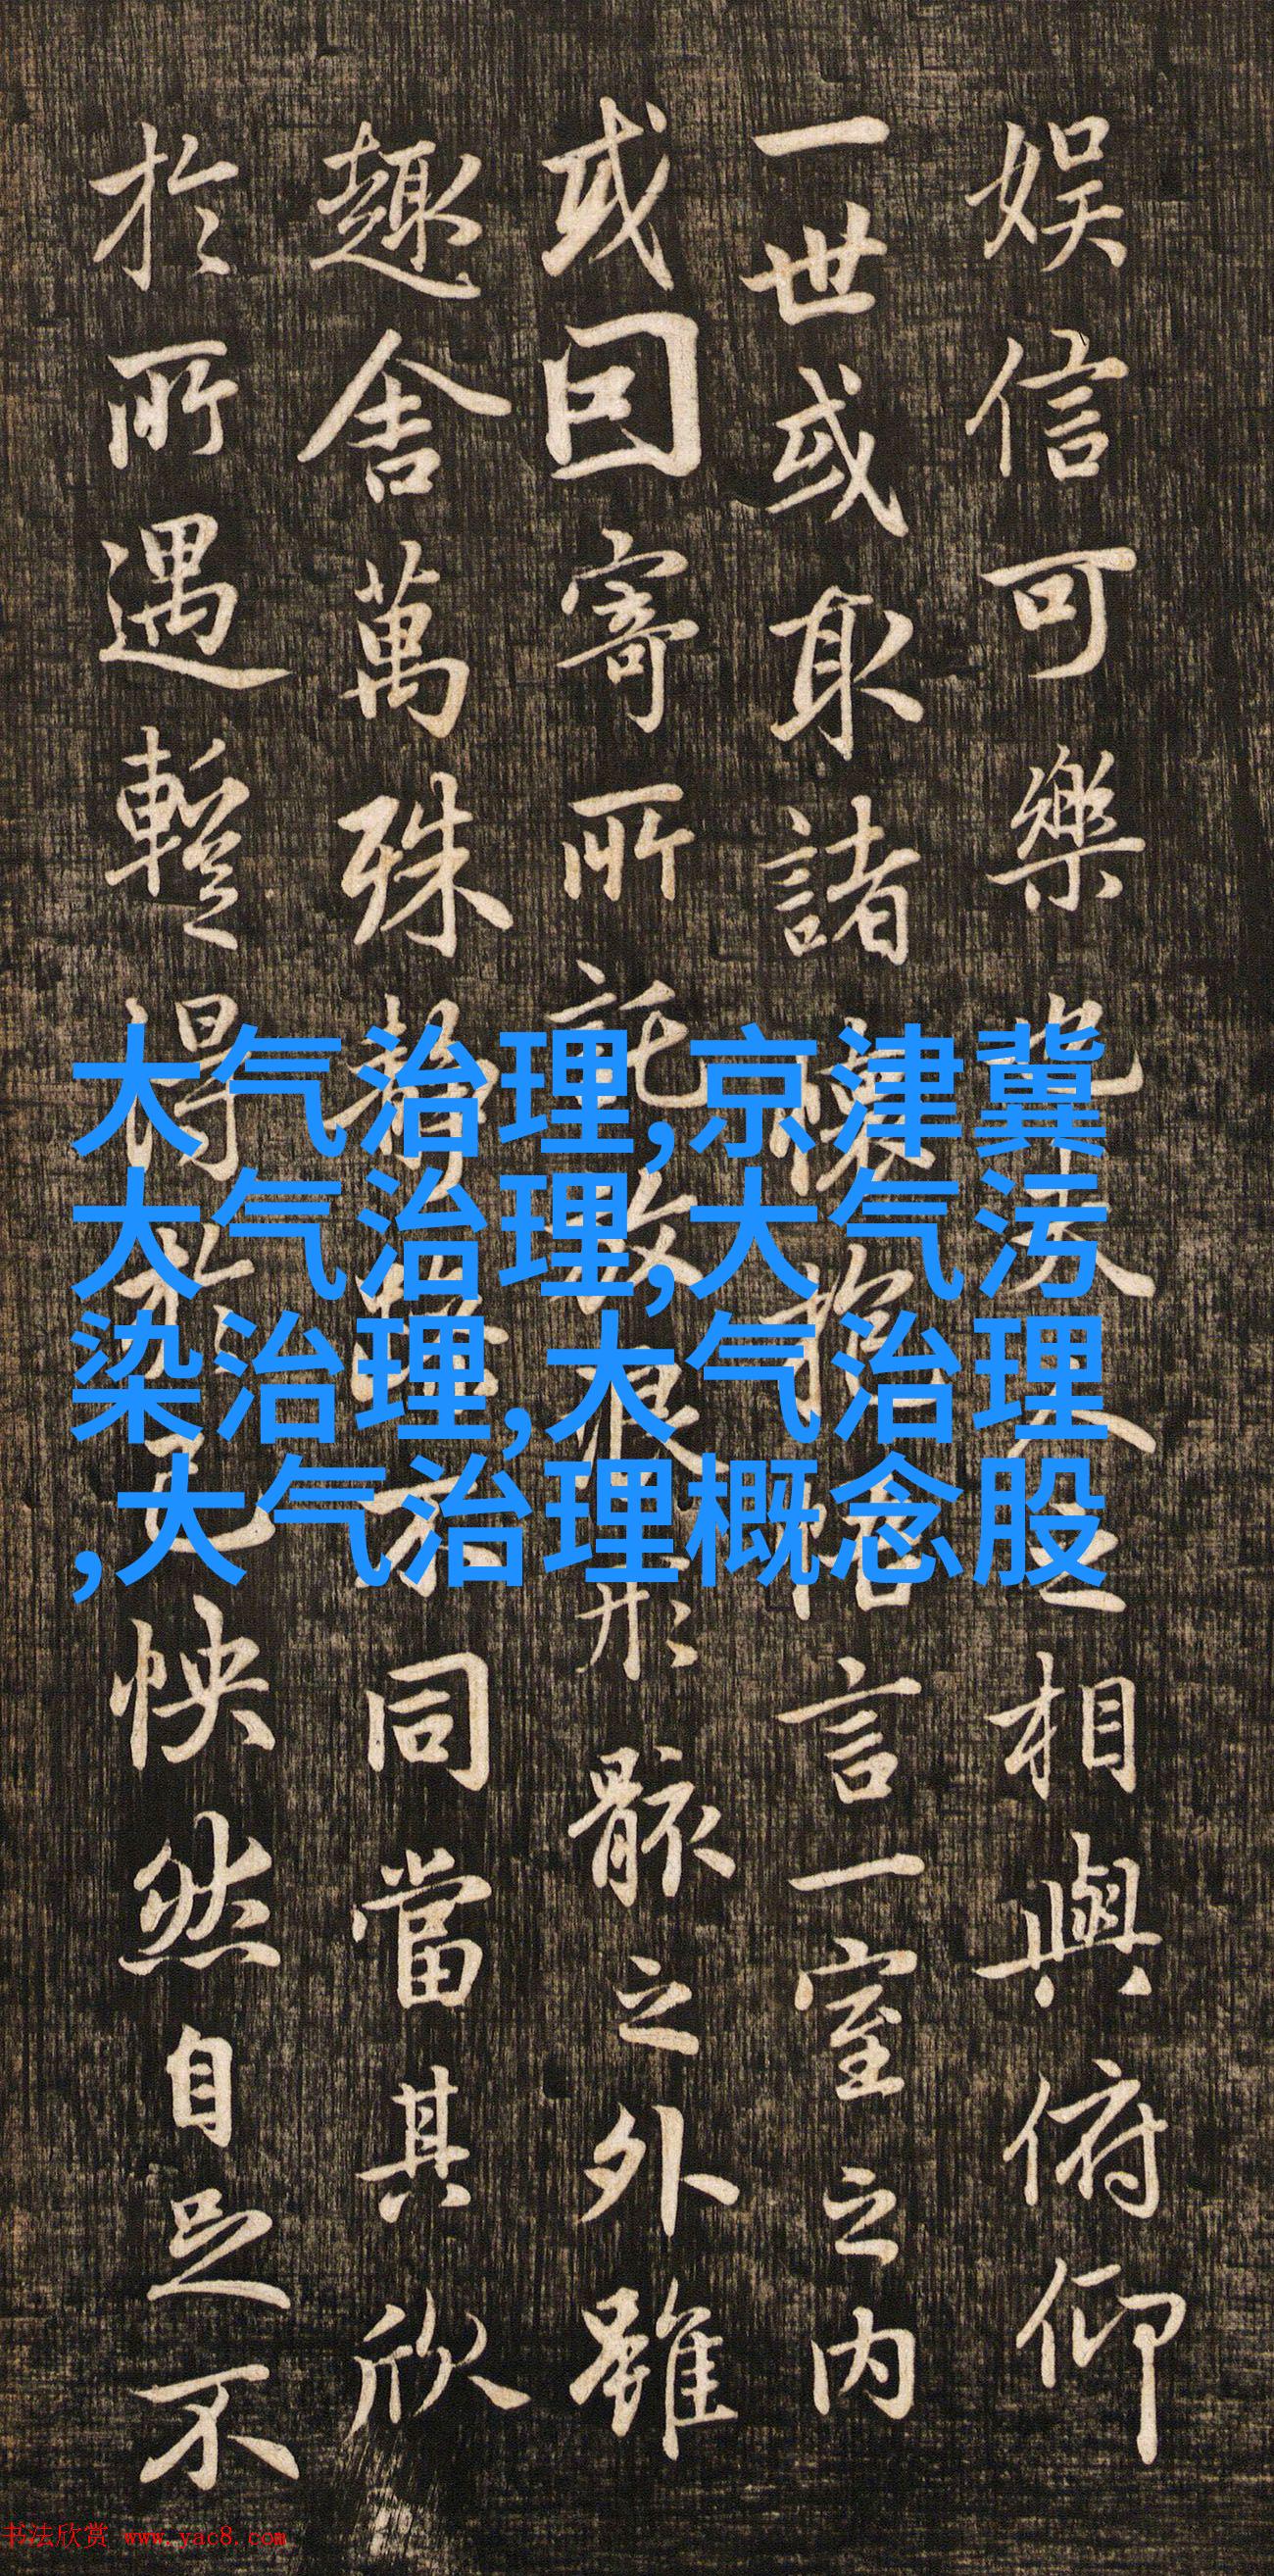 娱信可樂也夫人之相與俯仰
一世或取諸懷抱悟言一室之内
或因寄所託放浪形骸之外雖
趣舍萬殊靜躁不同當其欣
於所遇蹔得於己怏然自足不
大气治理,京津冀
大气治理,大气污
染治理,大气治理
,大气治理概念股
书法欣赏 www.yac8.com